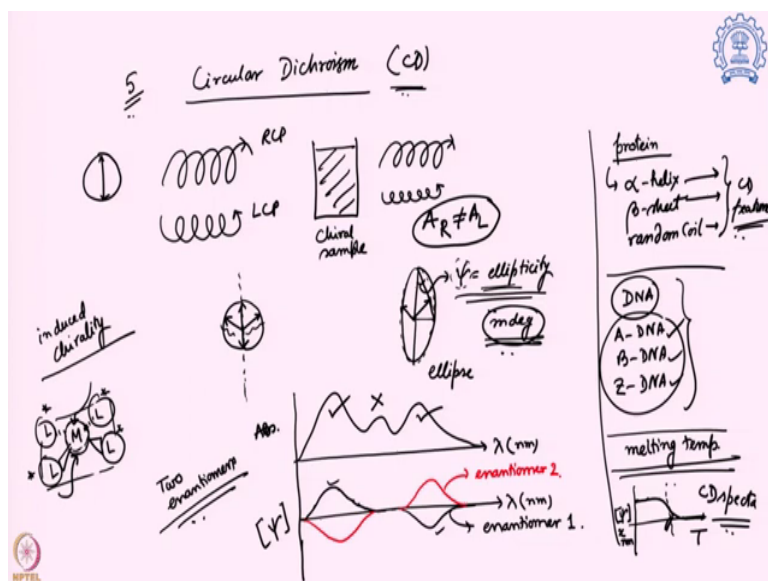 5 Circular Dichroism (CD)
RCP
LCP
chiral sample
A_R ≠ A_L
ψ = ellipticity
mdeg
ellipse
induced chirality
L
L
M
L
L
Two enantiomers
Abs.
λ (nm)
[ψ]
enantiomer 2.
λ (nm)
enantiomer 1.
protein
α-helix
β-sheet
random coil
CD
DNA
A-DNA
B-DNA
Z-DNA
melting temp.
CD spectra
[ψ]
T
NPTEL